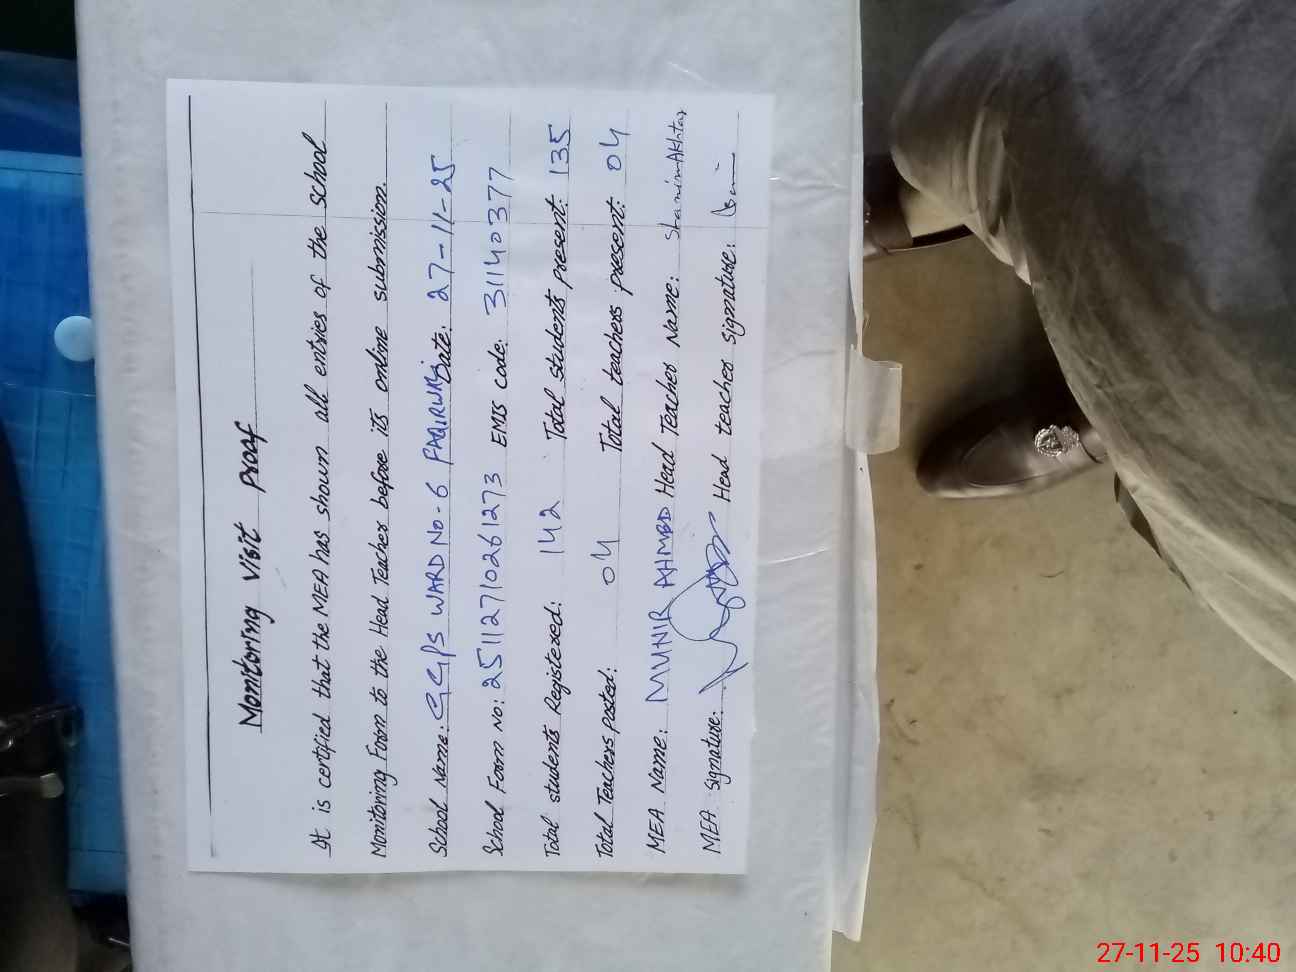 Monitoring Visit Proof
It is certified that the MEA has shown all entries of the school
Monitoring Form to the Head Teacher before its online submission.
School Name: GGPS WARD No-6 FAQIRWALI Date: 27-11-25
School Form No: 2511271026 1273 EMIS code: 31140377
Total students Registered: 142 Total students present: 135
Total Teachers posted: 04 Total teachers present: 04
MEA Name: MUNIR AHMED Head Teacher Name: Shamim Akhtar
MEA signature: Head teacher signature:
27-11-25 10:40